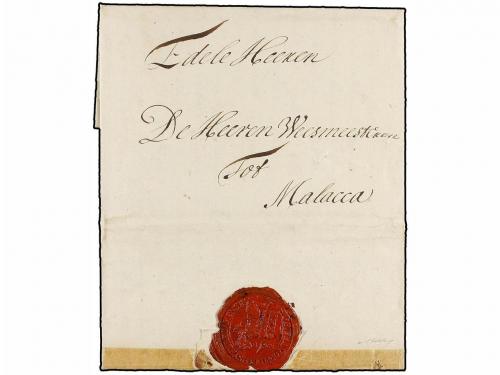 Edele Heeren
De Heeren Weesmeesteren
Tot
Malacca